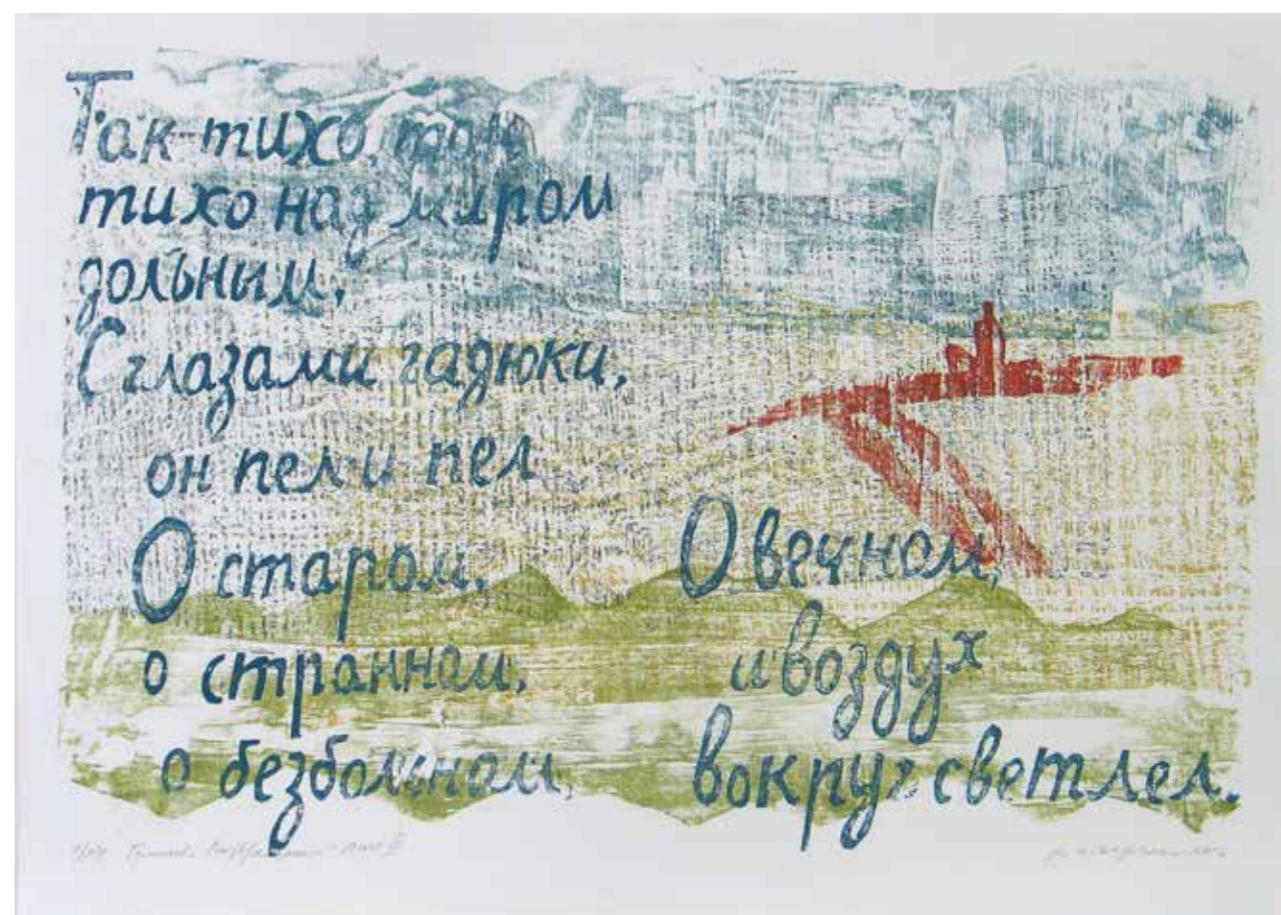 Так тихо, так
тихо над миром
дольным,
С глазами гадюки,
он пел и пел
О старом,
о странном,
о безбольном,
О вечном,
и воздух
вокруг светлел.